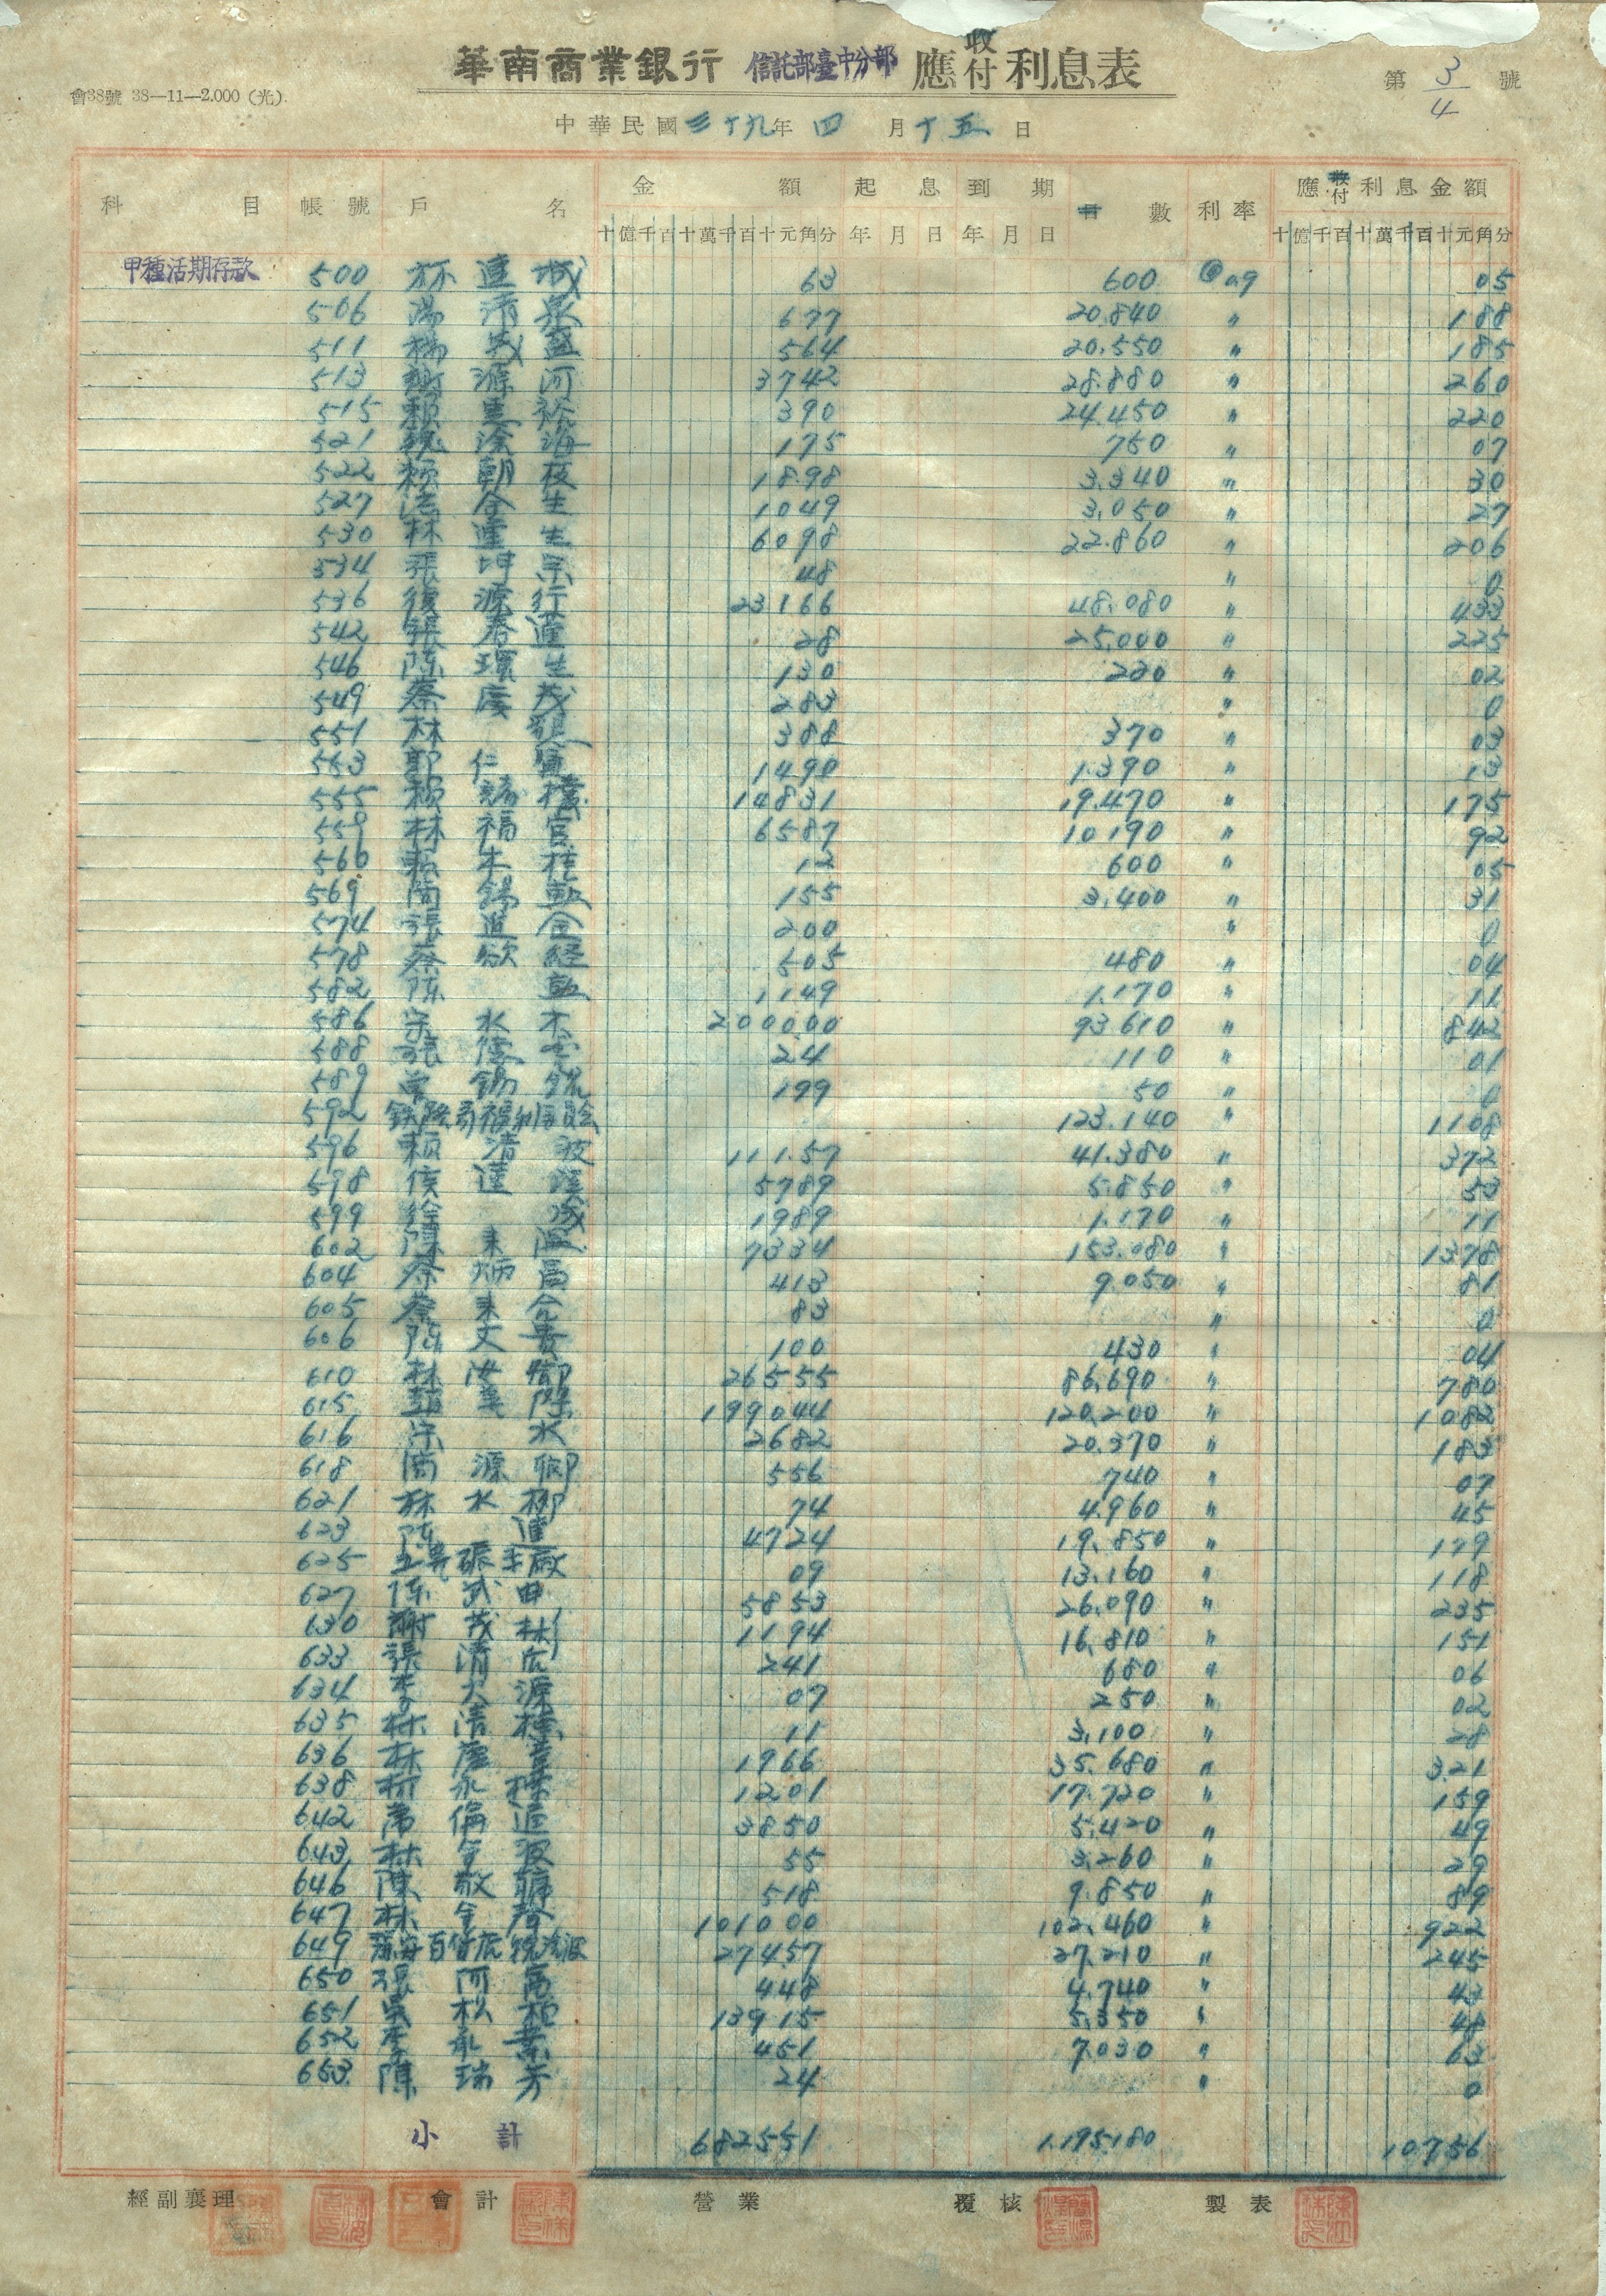 華南商業銀行 信託部臺中分部 應收付利息表
第 3/4 號
會38號 38—11—2.000 (光).
中華民國三十九年 四 月十五 日
科 目 帳 號 戶 名 金 額 起 息 到 期 日 數 利 率 應收付利息金額
十億千百十萬千百十元角分 年 月 日 年 月 日 十億千百十萬千百十元角分
甲種活期存款 500 林 連 城 63 600 @0.9 05
506 湯 清 泉 677 20.840 〃 188
511 楊 茂 盛 564 20.550 〃 185
513 謝 源 河 3742 28.880 〃 260
515 賴 390 24.450 〃 220
521 魏 海 175 750 〃 07
522 賴 朝 枝 1898 3.340 〃 30
527 金 生 1049 3.050 〃 27
530 林 連 生 6098 22.860 〃 206
534 張 坤 宗 48 〃 0
536 復 源 行 23166 48.080 〃 433
542 張 春 蓮 28 25.000 〃 225
546 陳 環 生 130 230 〃 02
549 蔡 慶 茂 283 〃 0
551 林 388 370 〃 03
553 郭 仁 1490 1.390 〃 13
555 14831 19.470 〃 175
559 林 福 官 6587 10190 〃 92
560 賴 木 桂 12 600 〃 05
569 簡 錫 155 3.400 〃 31
574 張 進 金 200 〃 0
578 蔡 欽 經 505 480 〃 04
582 陳 1149 1.170 〃 11
586 宋 水 木 200000 93610 〃 842
588 張 德 24 110 〃 01
589 曾 錫 銃 199 50 〃 0
592 鉄路局福利委員会 123.140 〃 1108
596 賴 清 波 11157 41.380 〃 372
598 侯 連 溪 5789 5.850 〃 53
599 徐 成 1989 1.170 〃 11
602 陳 来 溫 7334 153.080 〃 1378
604 蔡 炳 昌 413 9.050 〃 81
605 蔡 来 83 〃 0
606 陳 文 貴 100 430 〃 04
610 林 洪 卿 26555 86.690 〃 780
615 199044 120.200 〃 1082
616 宋 水 2682 20.370 〃 183
618 簡 源 卿 556 740 〃 07
621 林 水 柳 74 4.960 〃 45
623 陳 連 4724 19.850 〃 179
625 09 13.160 〃 118
627 陳 武 5853 26.090 〃 235
630 謝 茂 林 1194 16.810 〃 151
633 張 清 241 680 〃 06
634 李 火 源 07 250 〃 02
635 林 清 標 11 3.100 〃 28
636 林 1966 35.680 〃 321
638 柯 永 標 1201 17.720 〃 159
642 3850 5.420 〃 49
643 林 金 波 55 3.260 〃 29
646 陳 敬 518 9.850 〃 89
647 林 金 101000 102.460 〃 922
649 百貨店 27457 27.210 〃 245
650 張 阿 萬 448 4.740 〃 43
651 吳 松 柏 13915 5.350 〃 48
652 李 永 業 451 7.030 〃 63
653 陳 瑞 芳 24 〃 0
小 計 682551 1.195.180 10756
經副襄理 會 計 營 業 覆 核 製 表